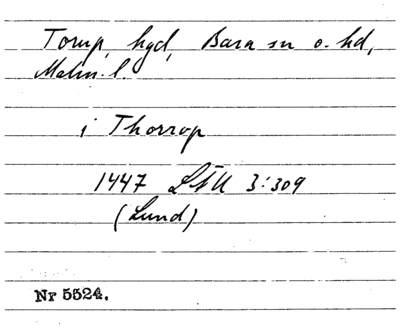 Torup, hgd, Bara sn o. hd,
Malm. l.
i Thorrop
1447 LÄU 3:309
(Lund)
Nr 5524.